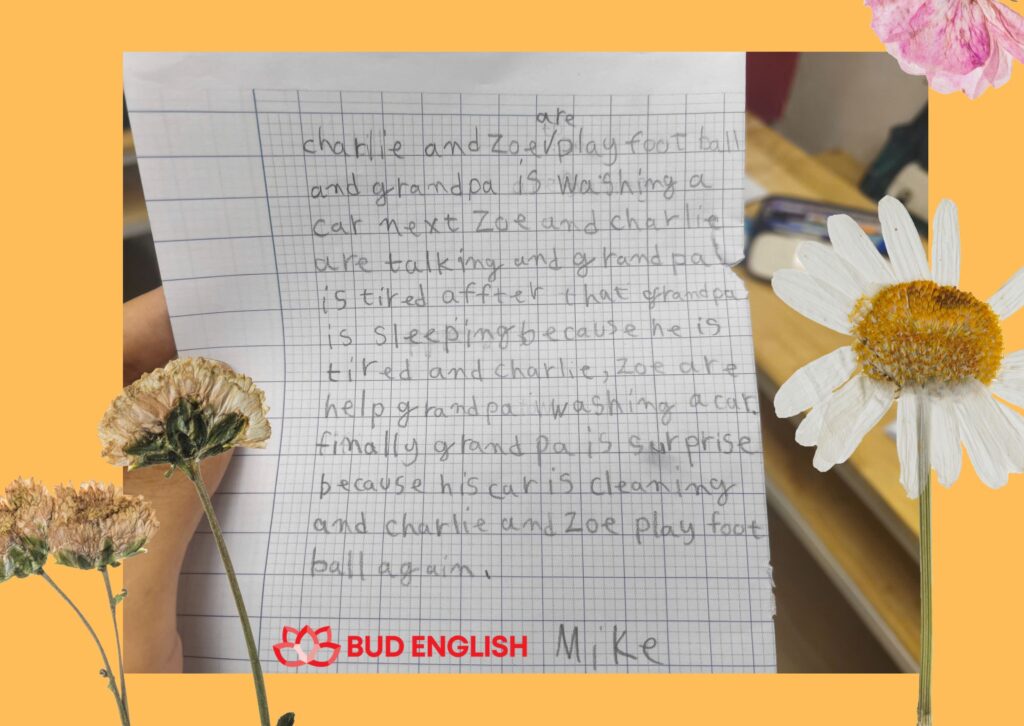 are
charlie and Zoe play foot ball
and grandpa is washing a
car next Zoe and charlie
are talking and grandpa
is tired affter that grandpa
is sleeping because he is
tired and charlie, Zoe are
help grandpa washing a car.
finally grandpa is surprise
because his car is cleaning
and charlie and Zoe play foot
ball again.
BUD ENGLISH
Mike